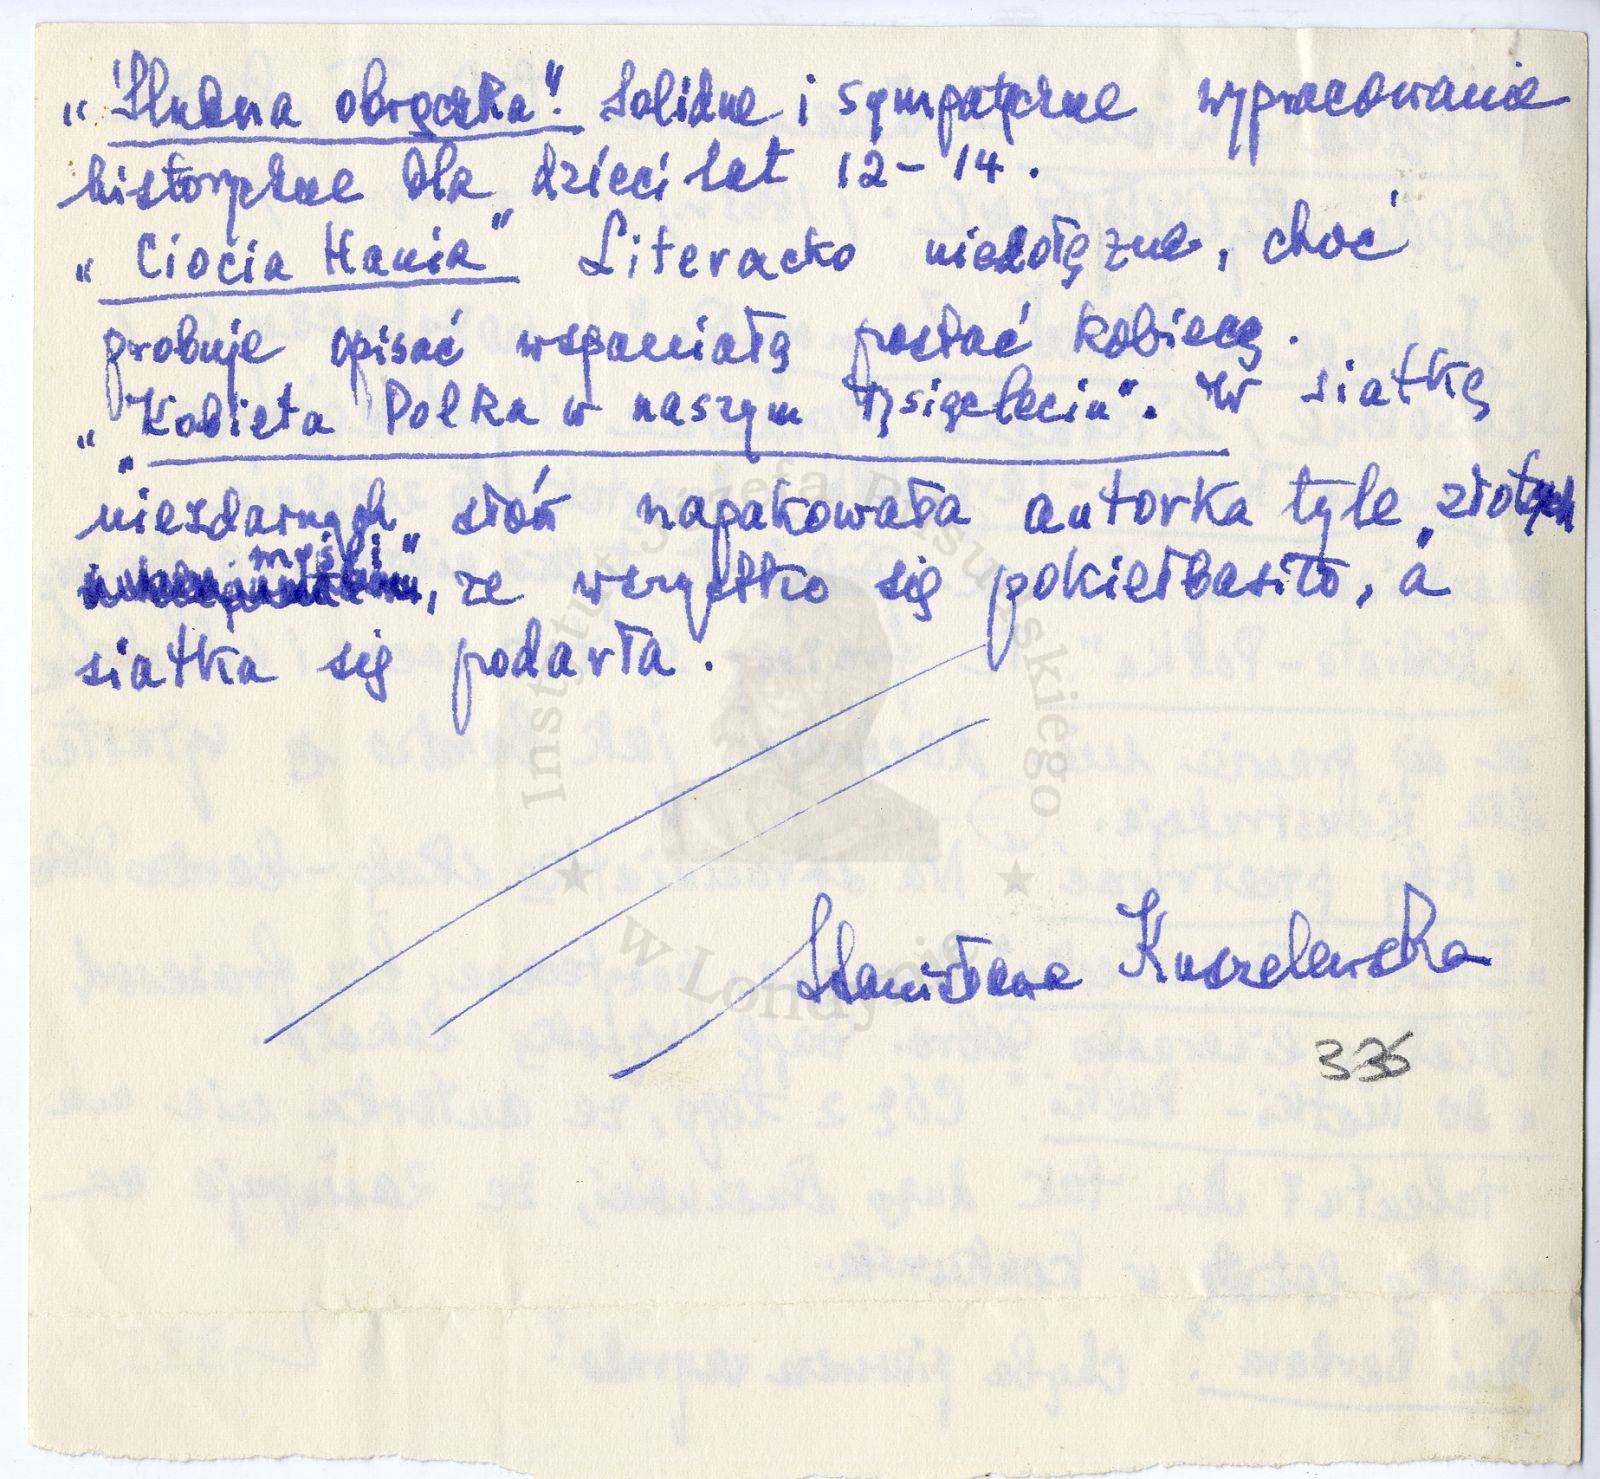 „Ślubna obrączka". Solidne i sympatyczne wypracowanie
historyczne dla dzieci lat 12–14.
„Ciocia Hania" Literacko niedołężne, choć
probuje opisać wspaniałą postać kobiecą.
„Kobieta Polka w naszym tysiącleciu". W siatkę
niezdarnych słów napakowała autorka tyle „złotych
myśli", ze wszystko się pokiełbasiło, a
siatka się podarła.
Stanisława Kuszelewska
336
Instytut Józefa Piłsudskiego
w Londynie